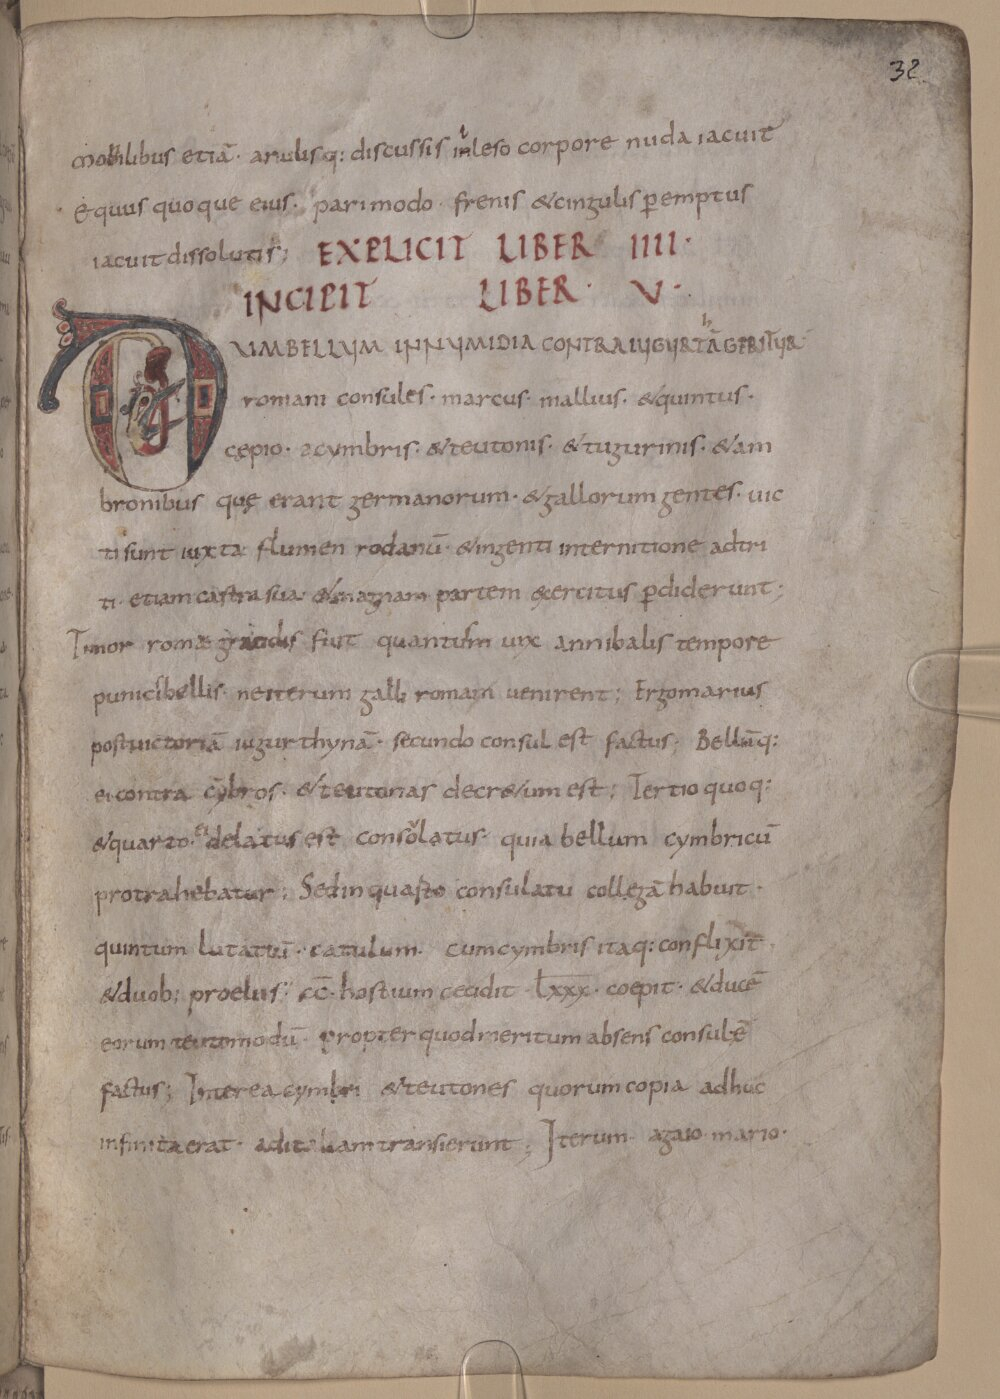 32
mobilibus etiā· anulisq: discussis inleso corpore nuda iacuit
Equus quoque eius· pari modo· frenis &cingulis pemptus
iacuit dissolutis; EXPLICIT LIBER IIII·
INCIPIT LIBER· V·
DUM BELLUM IN NUMIDIA CONTRA IUGURTHĀ GERITUR
romani consules· marcus mallius· &quintus·
cępio· a cymbris· &teutonis· &tugurinis· &am
bronibus quę erant germanorum· &gallorum gentes· uic
ti sunt iuxta flumen rodanū· &ingenti internitione adtri
ti· etiam castra sua &magnam partem exercitus pdiderunt;
Timor romae grandis fuit quantum uix annibalis tempore
punicibellis· ne iterum galli romam uenirent; Ergo marius
post uictoriā iugurthynā· secundo consul est factus; Bellūq:
ei contra cȳbros· &teutonas decr&um est; Tertio quoq:
&quarto· ei delatus est consolatus· quia bellum cymbricū
protrahebatur; Sed in quarto consulatu collegā habuit·
quintum lutatiū· catulum· cum cymbris itaq: conflixit·
&duob; proeliis· CC· hostium cecidit· lxxx· coepit· &ducē
eorum teutomodū· propter quod meritum absens consul ē
factus; Interea cymbri &teutones quorum copia adhuc
infinita erat· ad italiam transierunt; Iterum· a gaio mario·